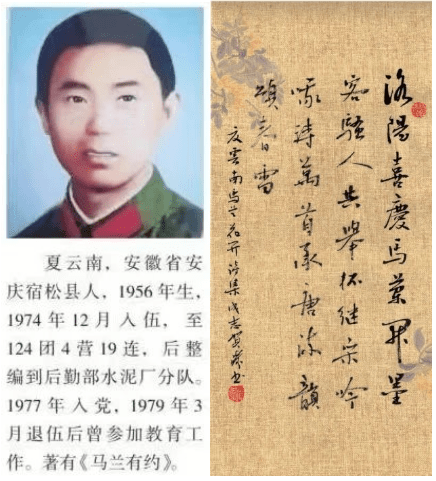 夏云南，安徽省安
庆宿松县人，1956年生，
1974年12月入伍，至
124团4营19连，后整
编到后勤部水泥厂分队。
1977年入党，1979年3
月退伍后曾参加教育工
作。著有《马兰有约》。
洛陽喜慶馬蘭開墨
客騷人共舉杯继宋吟
哦詩萬首承唐流韻
頌春雷